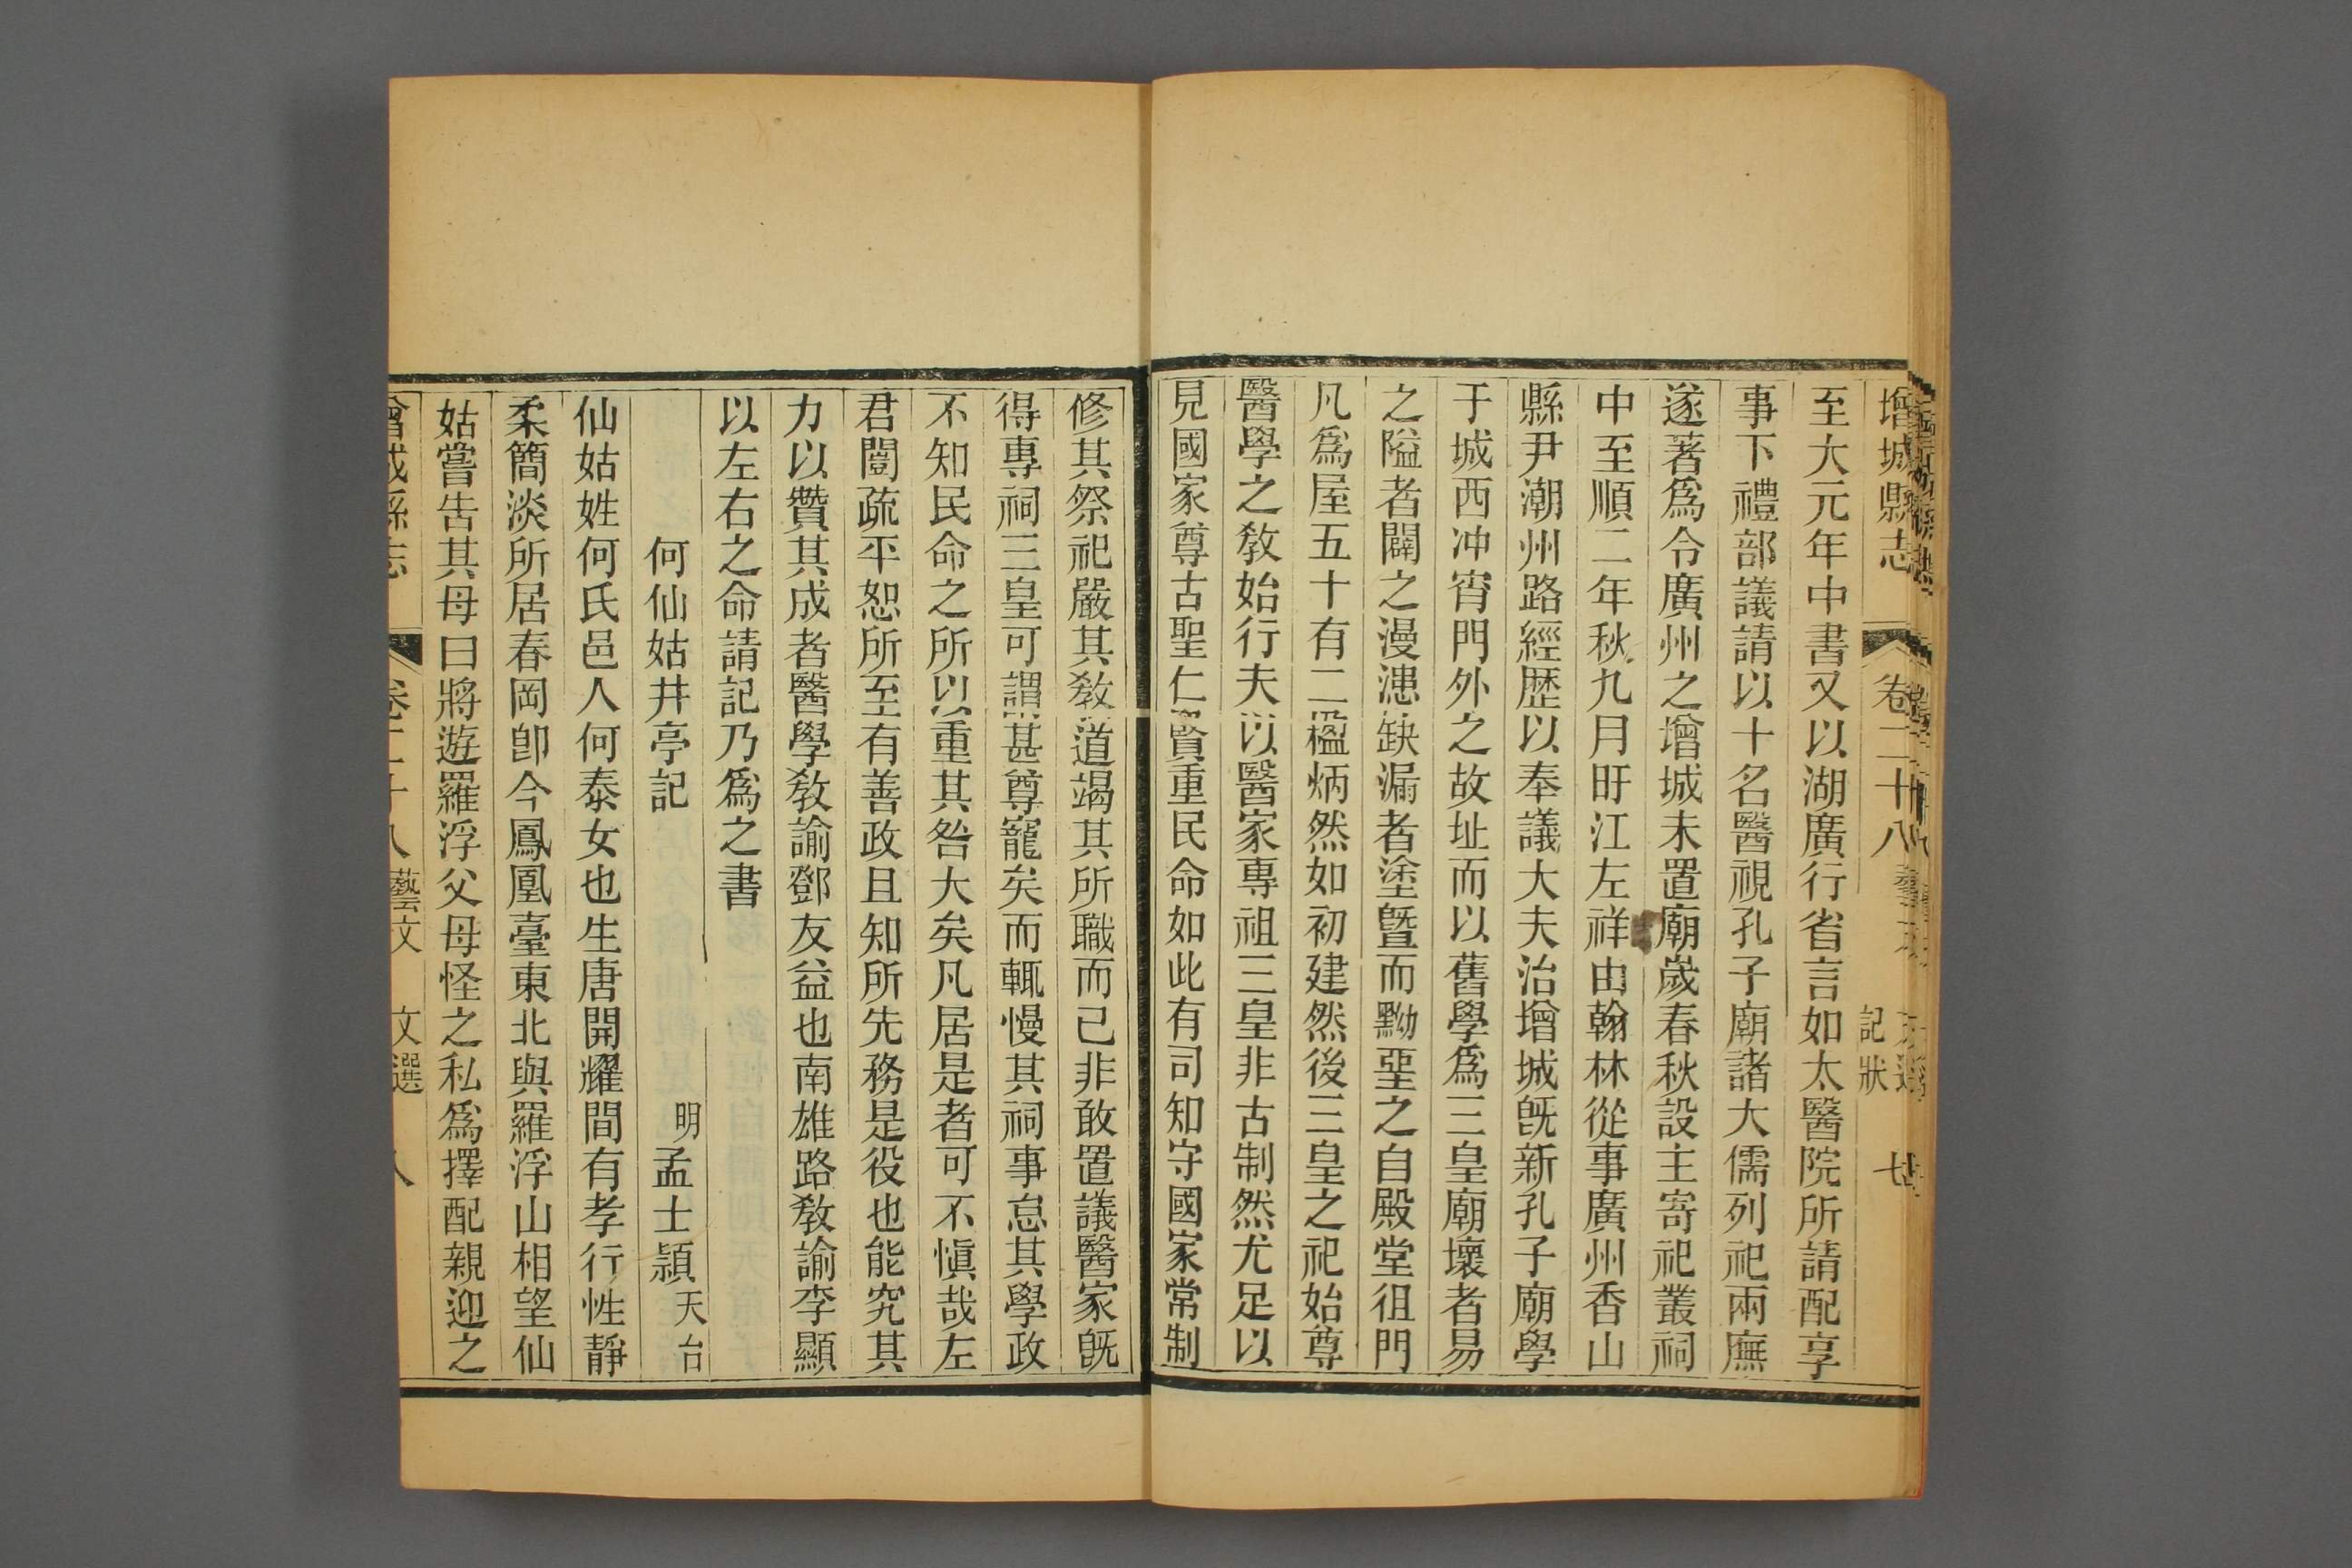 增城縣志 卷二十八 記狀 七
至大元年中書又以湖廣行省言如太醫院所請配享
事下禮部議請以十名醫視孔子廟諸大儒列祀兩廡
遂著爲令廣州之增城未置廟歲春秋設主寄祀叢祠
中至順二年秋九月旴江左祥由翰林從事廣州香山
縣尹潮州路經歷以奉議大夫治增城旣新孔子廟學
于城西冲宵門外之故址而以舊學爲三皇廟壞者易
之隘者闢之漫漶缺漏者塗曁而黝堊之自殿堂徂門
凡爲屋五十有二楹炳然如初建然後三皇之祀始尊
醫學之敎始行夫以醫家專祖三皇非古制然尤足以
見國家尊古聖仁賢重民命如此有司知守國家常制
修其祭祀嚴其敎道竭其所職而已非敢置議醫家旣
得專祠三皇可謂甚尊寵矣而輒慢其祠事怠其學政
不知民命之所以重其咎大矣凡居是者可不愼哉左
君闓疏平恕所至有善政且知所先務是役也能究其
力以贊其成者醫學敎諭鄧友益也南雄路敎諭李顯
以左右之命請記乃爲之書
何仙姑井亭記 明孟士潁天台
仙姑姓何氏邑人何泰女也生唐開耀間有孝行性靜
柔簡淡所居春岡卽今鳳凰臺東北與羅浮山相望仙
姑嘗告其母曰將遊羅浮父母怪之私爲擇配親迎之
增城縣志 卷二十八 藝文 文選 八